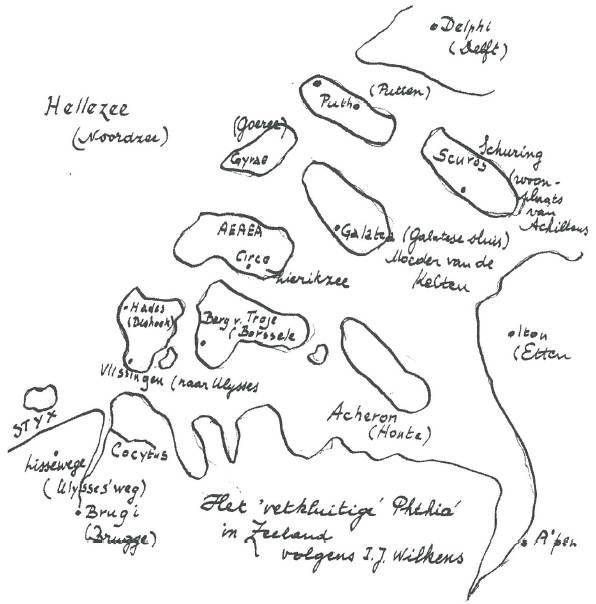 Delphi
(Delft)
Hellezee
(Noordzee)
(Putten)
Putho
(Goeree)
Gyrae
Scuros
Schuring
(woon-
plaats
van
Achilleus
AEAEA
Circe
Zierikzee
Galatea (Galatese sluis)
Moeder van de
Kelten
Hades
(Dishoek)
Berg v. Troje
(Borssele
Vlissingen (naar Ulysses
Iton
(Etten
Acheron
(Honte)
STYX
Cocytus
Lissewege
(Ulysses'weg)
Brugi
(Brugge)
Het 'vetkluitige' Phthia
in Zeeland
volgens I.J. Wilkens
A'pen